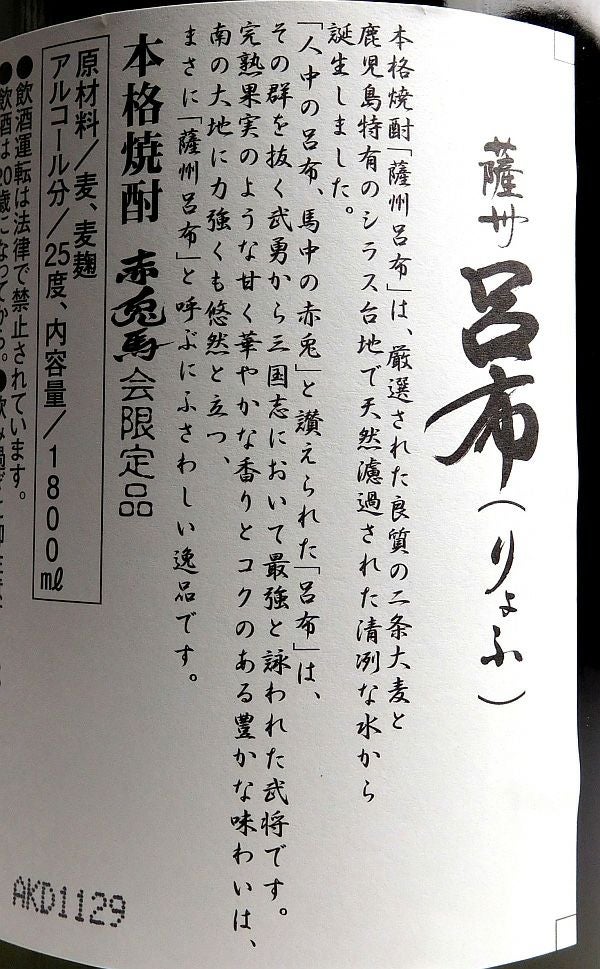 薩州 呂布(りょふ)
本格焼酎「薩州呂布」は、厳選された良質の二条大麦と
鹿児島特有のシラス台地で天然濾過された清冽な水から
誕生しました。
「人中の呂布、馬中の赤兎」と讃えられた「呂布」は、
その群を抜く武勇から三国志において最強と詠われた武将です。
完熟果実のような甘く華やかな香りとコクのある豊かな味わいは、
南の大地に力強くも悠然と立つ、
まさに「薩州呂布」と呼ぶにふさわしい逸品です。
本格焼酎 赤兎馬会限定品
原材料/麦、麦麹
アルコール分/25度、内容量/1800㎖
●飲酒運転は法律で禁止されています。
●飲酒は20歳になってから。
AKD1129